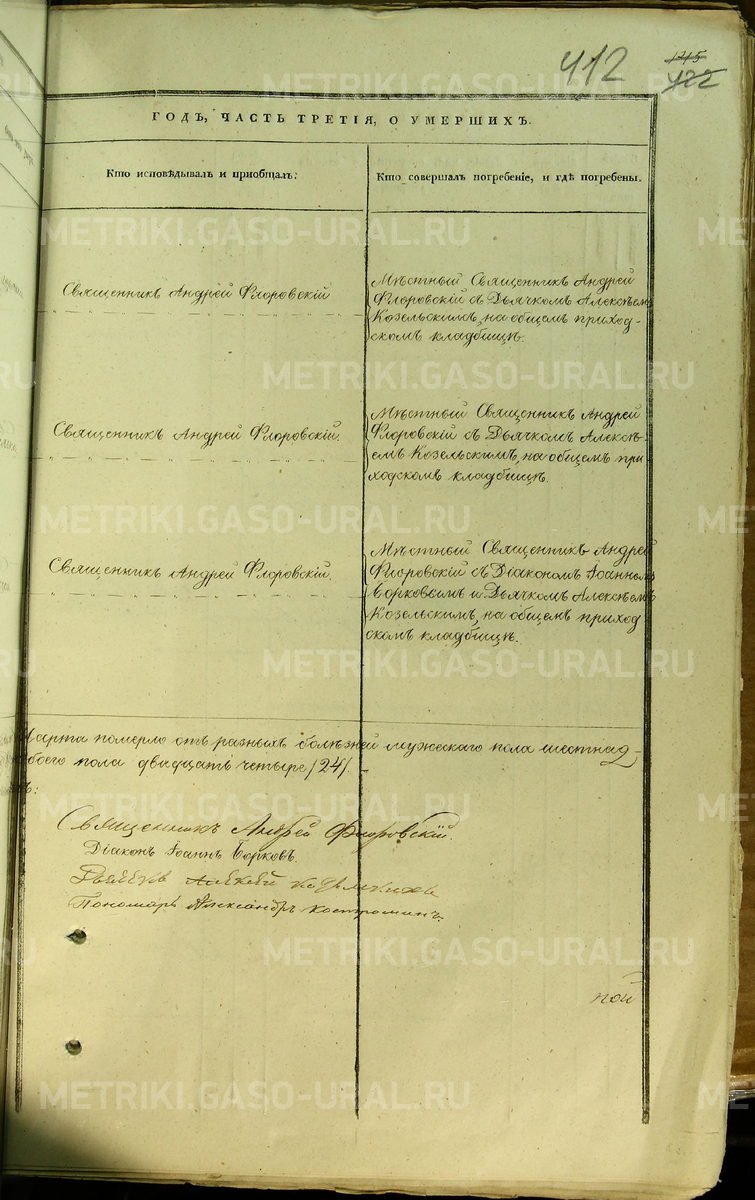 412
1215
422
ГОДЪ, ЧАСТЬ ТРЕТІЯ, О УМЕРШИХЪ.
Кто исповѣдывалъ и пріобщалъ:
Кто совершалъ погребеніе, и гдѣ погребены.
Священникъ Андрей Флоровскій
Мѣстный Священникъ Андрей
Флоровскій съ Дьячкомъ Алексѣемъ
Козельскимъ, на общемъ приход-
скомъ кладбищѣ.
Священникъ Андрей Флоровскій.
Мѣстный Священникъ Андрей
Флоровскій съ Дьячкомъ Алексѣ-
емъ Козельскимъ, на общемъ при-
ходскомъ кладбищѣ.
Священникъ Андрей Флоровскій.
Мѣстный Священникъ Андрей
Флоровскій съ Діакономъ Іоанномъ
Борковымъ и Дьячкомъ Алексѣемъ
Козельскимъ, на общемъ приход
скомъ кладбищѣ.
Марта померло отъ разныхъ болѣзней мужескаго пола шестнад-
обоего пола двадцать четыре /24/.
Священникъ Андрей Флоровскій.
Діаконъ Іоаннъ Борковъ.
Дьячекъ Алексѣй
Пономарь Александръ Костроминъ.
ной
METRIKI.GASO-URAL.RU